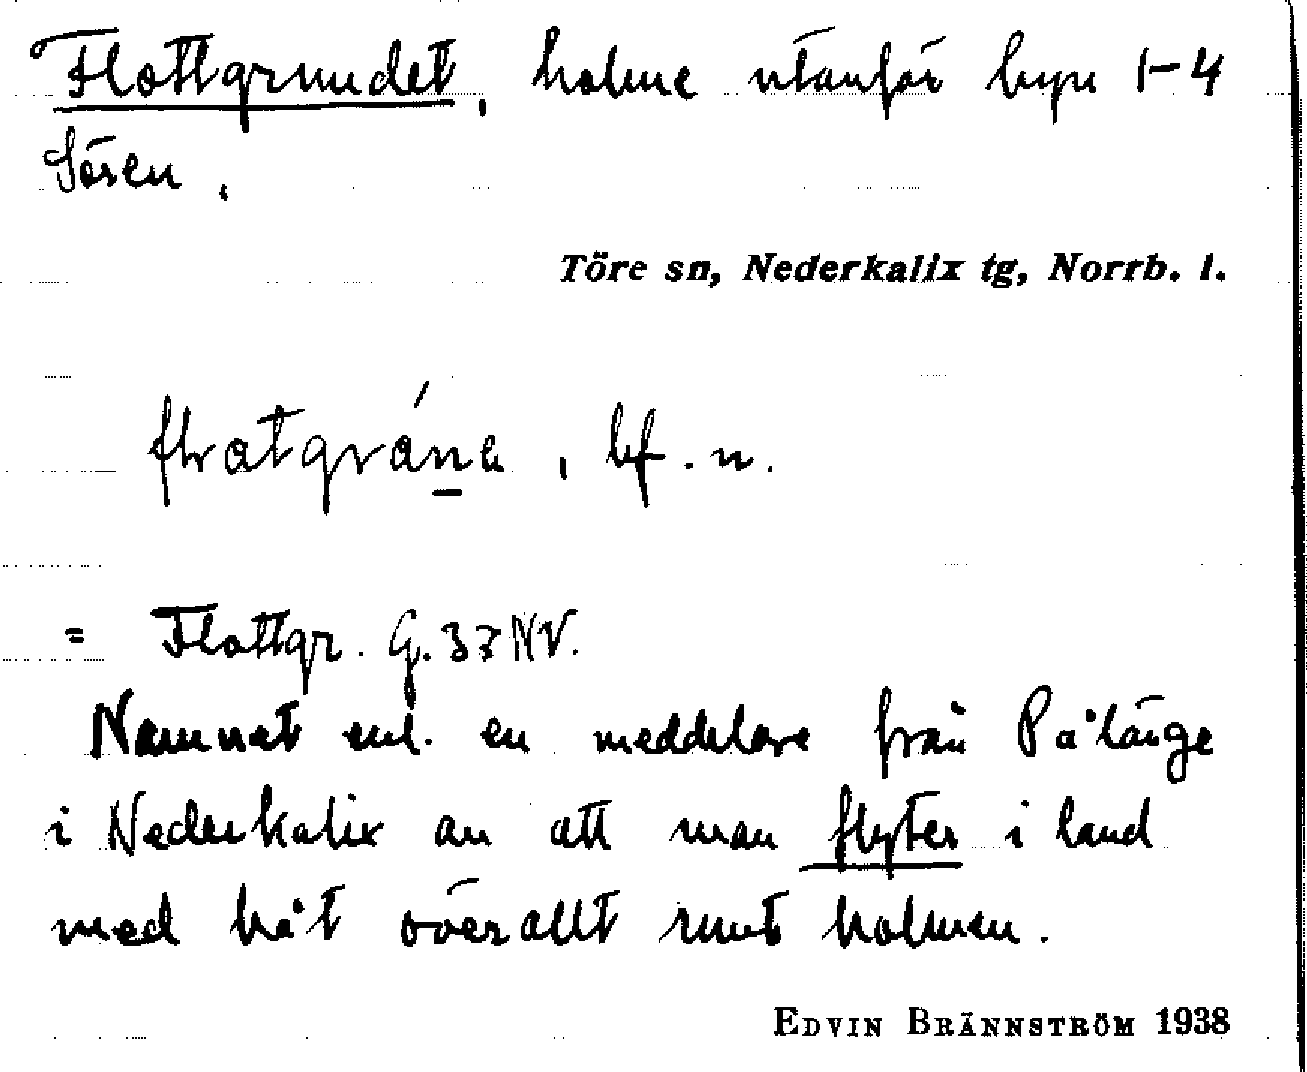 Flottgrundet, holme utanför byn 1–4
Sören.
Töre sn, Nederkalix tg, Norrb. l.
bf. n.
= Flottgr. G. 37 NV.
Namnet enl. en meddelare från Pålänge
i Nederkalix av att man flyter i land
med båt överallt runt holmen.
EDVIN BRÄNNSTRÖM 1938